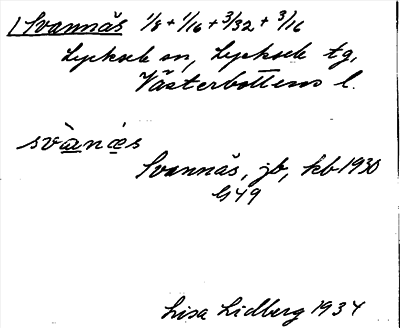 Svannäs 1/8 + 1/16 + 3/32 + 3/16
Lycksele sn, Lycksele tg,
Västerbottens l.
svànæs
Svannäs, jb, kb 1930
G 49
Lisa Lidberg 1934